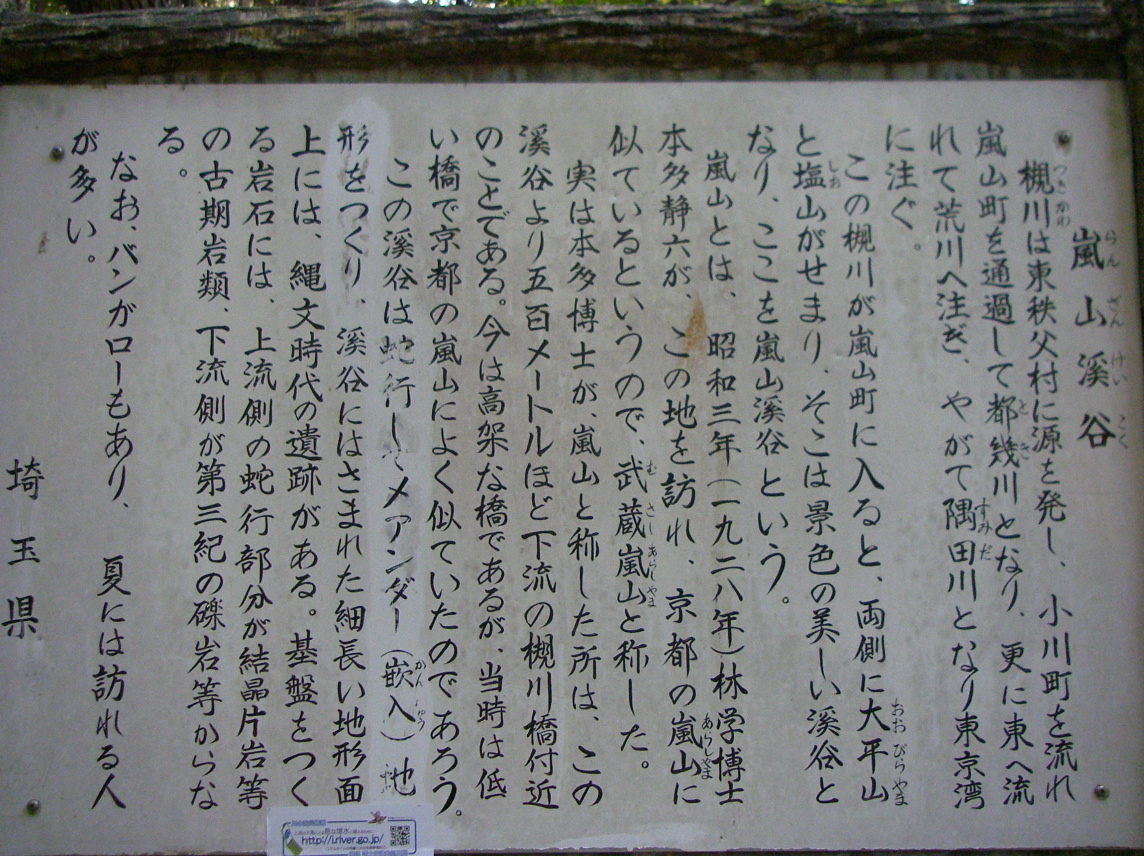 嵐山溪谷
槻川は東秩父村に源を発し、小川町を流れ
嵐山町を通過して都幾川となり、更に東へ流
れて荒川へ注ぎ、やがて隅田川となり東京湾
に注ぐ。
この槻川が嵐山町に入ると、両側に大平山
と塩山がせまり、そこは景色の美しい溪谷と
なり、ここを嵐山溪谷という。
嵐山とは、昭和三年(一九二八年)林学博士
本多静六が、この地を訪れ、京都の嵐山に
似ているというので、武蔵嵐山と称した。
実は本多博士が、嵐山と称した所は、この
溪谷より五百メートルほど下流の槻川橋付近
のことである。今は高架な橋であるが、当時は低
い橋で京都の嵐山によく似ていたのであろう。
この溪谷は蛇行してメアンダー(嵌入)地
形をつくり、溪谷にはさまれた細長い地形面
上には、縄文時代の遺跡がある。基盤をつく
る岩石には、上流側の蛇行部分が結晶片岩等
の古期岩類、下流側が第三紀の礫岩等からな
る。
なお、バンガローもあり、夏には訪れる人
が多い。
埼玉県
http://i.river.go.jp/